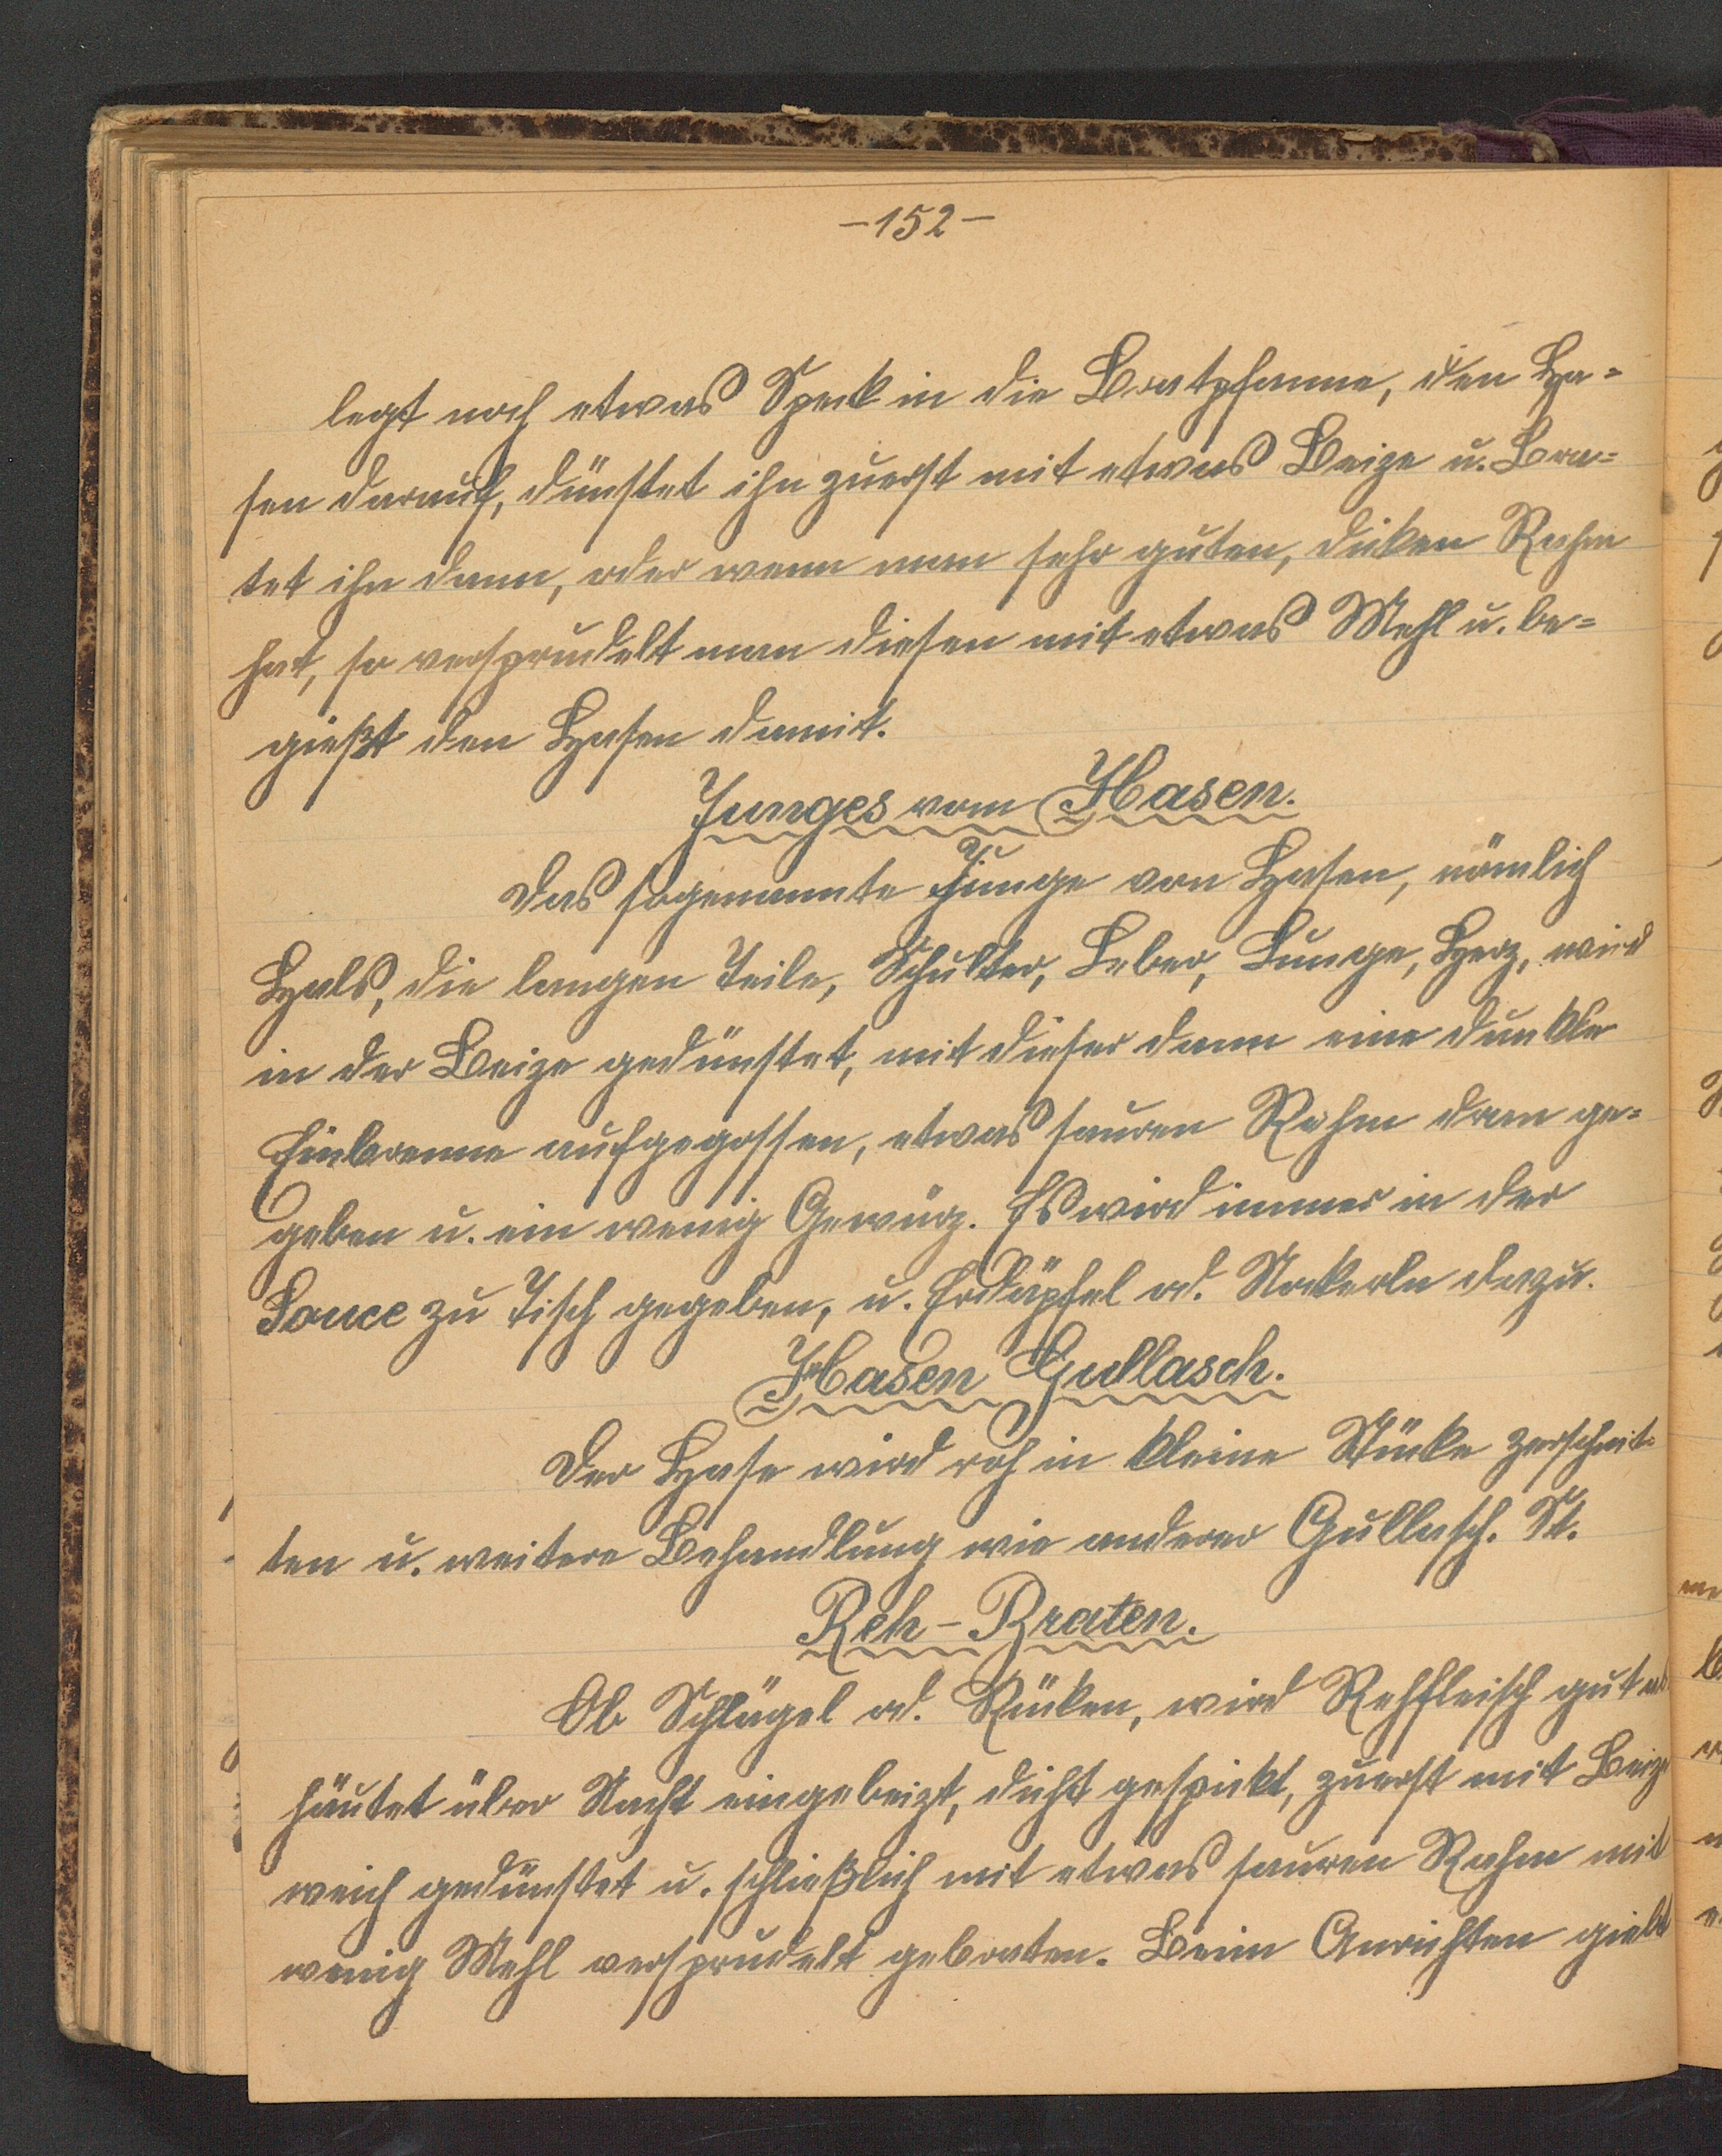 -152-
legt noch etwas Speck in die Bratpfanne, den Ha=
sen darauf, dünstet ihn zuerst mit etwas Beize u. bra=
tet ihn dann, oder wenn man sehr guten, dicken Rahm
hat, so versprudelt man diesen mit etwas Mehl u. be=
gießt den Hasen damit.
Junges vom Hasen.
Das sogenannte Junge von Hasen, nämlich
Hals, die langen Teile, Schulter, Leber, Lunge, Herz, wird
in der Beize gedünstet, mit dieser dann eine dunkle
Einbrenne aufgegossen, etwas sauren Rahm dran ge=
geben u. ein wenig Gewürz. Es wird immer in der
Souce zu Tisch gegeben, u. Erdäpfel od. Nockerln dazu.
Hasen Gullasch.
Der Hase wird roh in kleine Stücke zerschnit=
ten u. weitere Behandlung wie anderer Gullasch. St.
Reh-Braten.
Ob Schlägel od. Rücken, wird Rehfleisch gut
häutet über Nacht eingebeizt, dicht gespickt, zuerst mit Beize
weich gedünstet u. schließlich mit etwas sauren Rahm mit
wenig Mehl versprudelt gebraten. Beim Anrichten giebt